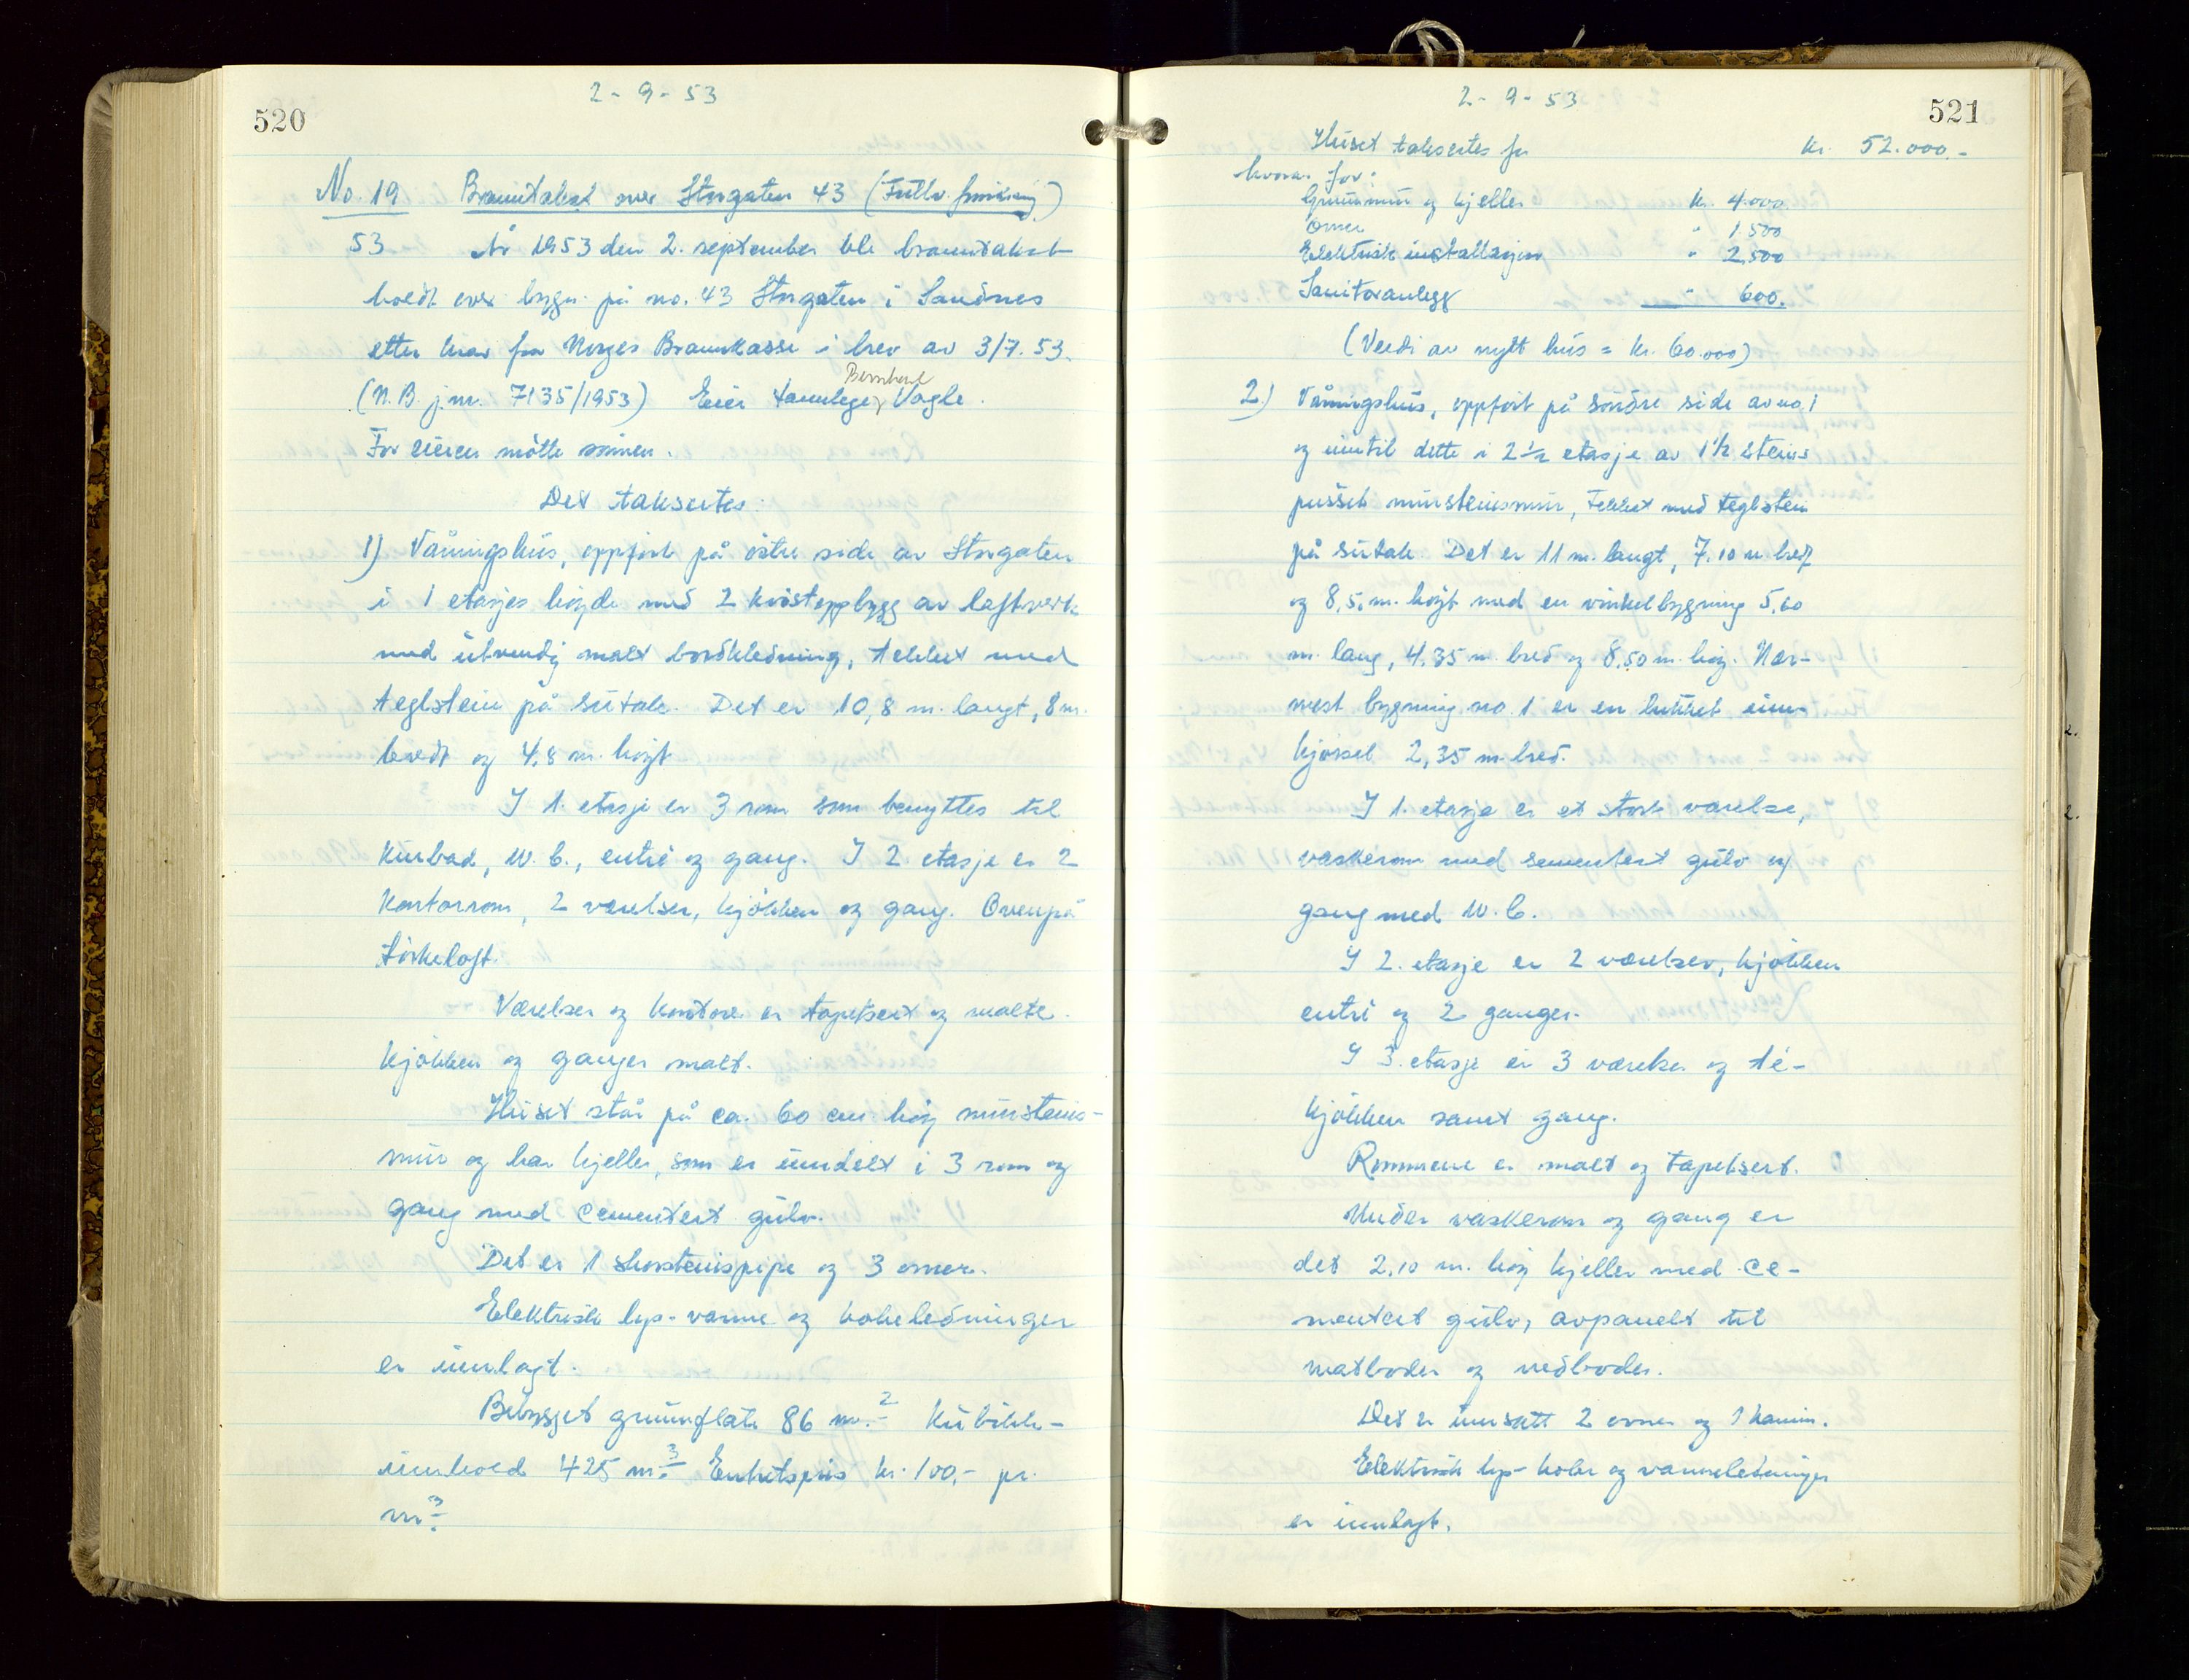 520
2-9-53
No. 19 Branntakst over Storgaten 43 (Fullv. forsikring)
53 År 1953 den 2. september ble branntakst
holdt over bygn. på no. 43 Storgaten i Sandnes
etter krav fra Norges Brannkasse i brev av 3/7. 53.
(N.B. j.nr. 7135/1953) Eier tannlege Bernhard Vagle.
For eieren møtte
Det taksertes:
1) Våningshus, oppført på østre side av Storgaten
i 1 etasjes høyde med 2 kvistoppbygg av lafteverk
med utvendig malt bordkledning, tekket med
teglstein på sutak. Det er 10,8 m. langt, 8 m.
bredt og 4,8 m. høyt
I 1. etasje er 3 rom som benyttes til
Kurbad, W.C., entré og gang. I 2. etasje er 2
Kontorrom, 2 værelser, kjøkken og gang. Ovenpå
tørkeloft.
Værelser og kontorer er tapetsert og malte.
Kjøkken og ganger malt.
Huset står på ca. 60 cm høy murstens-
mur og har kjeller, som er inndelt i 3 rom og
gang med cementert gulv.
Det er 1 skorstenspipe og 3 ovner.
Elektrisk lys- varme og kokeledninger
er innlagt.
Bebygget grunnflate 86 m.² Kubikk-
innhold 425 m.³ Enhetspris kr. 100,- pr.
m³.
521
2-9-53
Huset taksertes for kr. 52.000.-
hvorav for:
Grunnmur og kjeller kr. 4.000
Ovner " 1.500
Elektrisk installasjon " 2.500
Sanitæranlegg " 600.
(Verdi av nytt hus = kr. 60.000)
2.) Våningshus, oppført på søndre side av no. 1
og inntil dette i 2 1/2 etasje av 1 1/2 steins
pusset murstensmur, tekket med teglstein
på sutak. Det er 11 m. langt, 7,10 m. bredt
og 8,5 m. høyt med en vinkelbygning 5,60
m. lang, 4,35 m. bred og 8,50 m. høy. Nær-
mest bygning no. 1 er en lukket inn-
kjørsel 2,35 m. bred.
I 1. etasje er et stort værelse,
vaskerom med sementert gulv og
gang med W.C.
I 2. etasje er 2 værelser, kjøkken
entré og 2 ganger.
I 3. etasje er 3 værelser og té-
kjøkken samt gang.
Rommene er malt og tapetsert.
Under vaskerom og gang er
det 2,10 m. høy kjeller med ce-
mentert gulv, avpanelt til
matboder og vedboder.
Det er innsatt 2 ovner og 1 kamin.
Elektrisk lys- koke og varmeledninger
er innlagt.